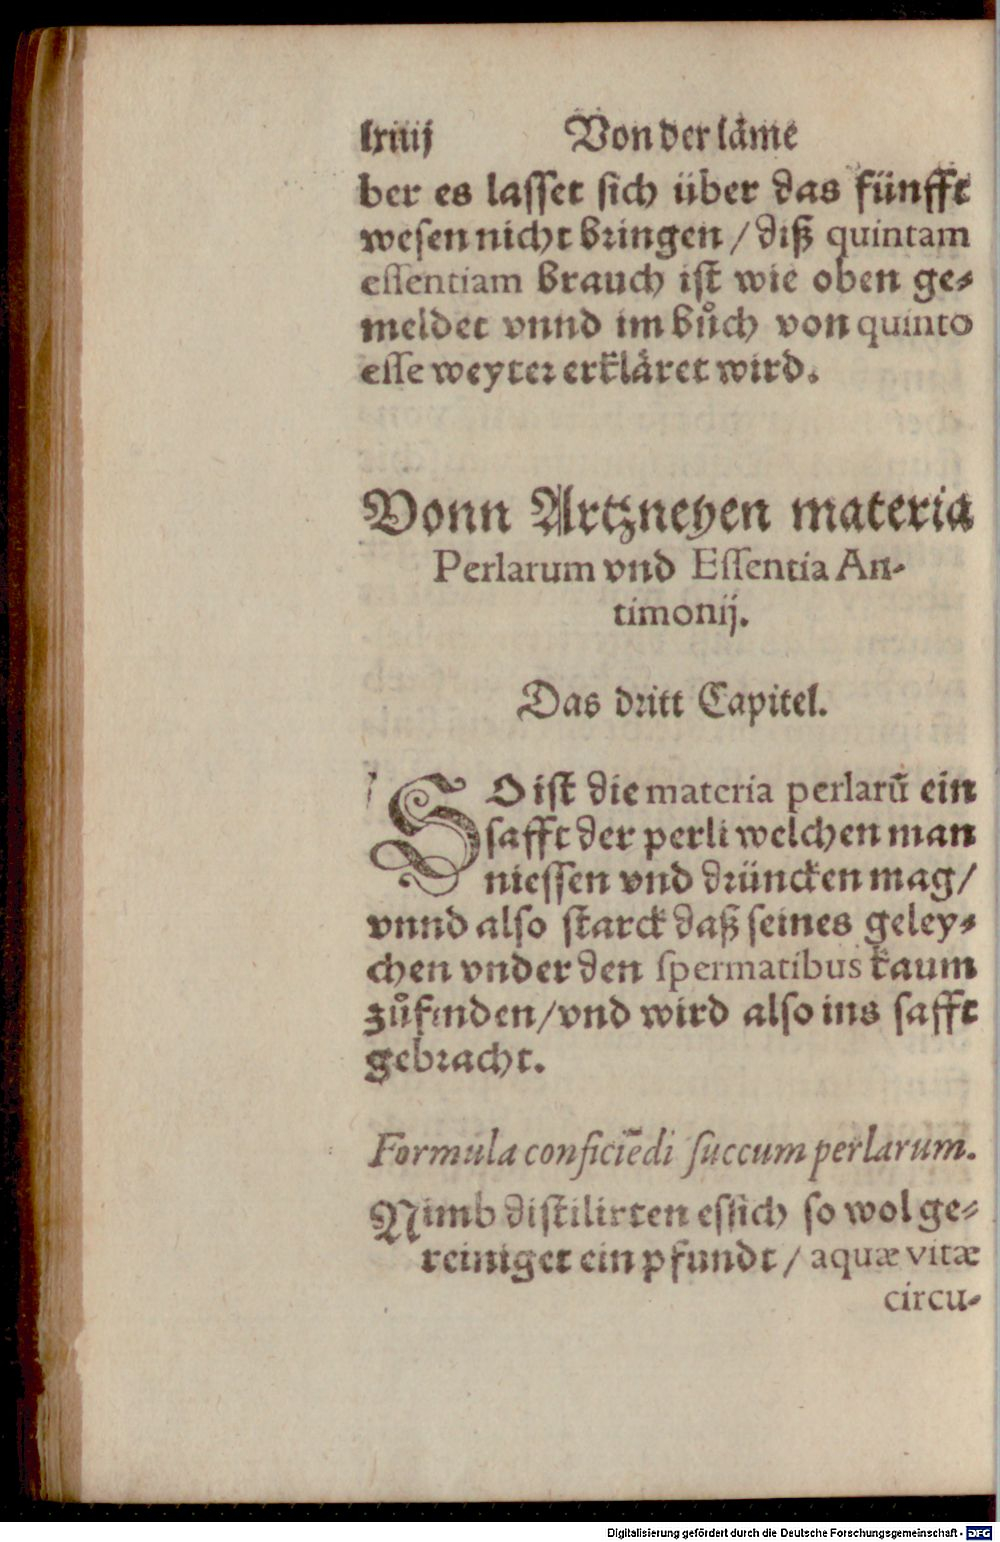 lxiiij Von der läme
ber es lasset sich über das fünfft
wesen nicht bringen / diß quintam
essentiam brauch ist wie oben ge-
meldet vnnd im bůch von quinto
esse weyter erkläret wird.
Vonn Artzneyen materia
Perlarum vnd Essentia An-
timonij.
Das dritt Capitel.
SO ist die materia perlarū ein
safft der perli welchen man
niessen vnd drüncken mag/
vnnd also starck daß seines geley-
chen vnder den spermatibus kaum
zůfinden/vnd wird also ins safft
gebracht.
Formula conficiēdi succum perlarum.
Nimb distilirten essich so wol ge-
reiniget ein pfundt / aquæ vitæ
circu-
Digitalisierung gefördert durch die Deutsche Forschungsgemeinschaft - DFG